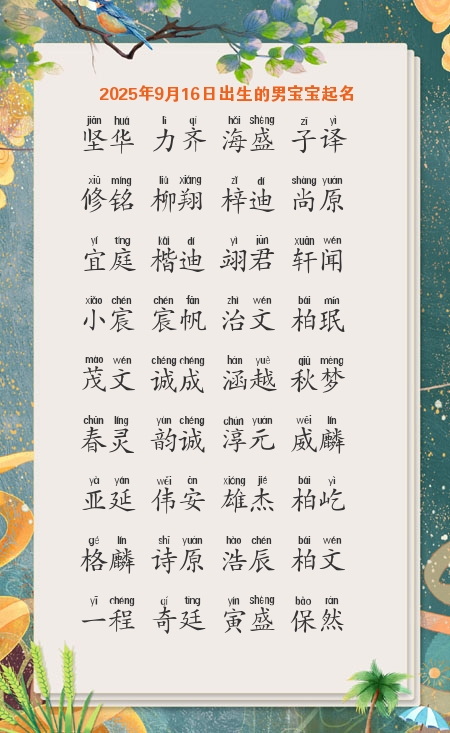 2025年9月16日出生的男宝宝起名
jiān huá lì qí hǎi shèng zǐ yì
坚华 力齐 海盛 子译
xiū míng liǔ xiáng zǐ dí shàng yuán
修铭 柳翔 梓迪 尚原
yí tíng kǎi dí yì jūn xuān wén
宜庭 楷迪 翊君 轩闻
xiǎo chén chén fān zhì wén bǎi mín
小宸 宸帆 治文 柏珉
mào wén chéng chéng hán yuè qiū mèng
茂文 诚成 涵越 秋梦
chūn líng yùn chéng chún yuán wēi lín
春灵 韵诚 淳元 威麟
yà yán wěi ān xióng jié bǎi yì
亚延 伟安 雄杰 柏屹
gé lín shī yuán hào chén bǎi wén
格麟 诗原 浩辰 柏文
yī chéng qí tíng yín shèng bǎo rán
一程 奇廷 寅盛 保然